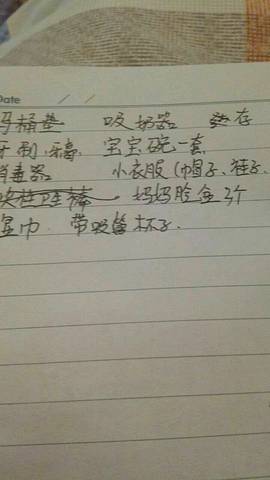 Date / /
马桶垫 吸奶器 生存
牙刷、牙膏、宝宝碗一套
消毒器 小衣服(帽子、袜子、
卫生棒 妈妈脸盆3个
湿巾 带吸管杯子.